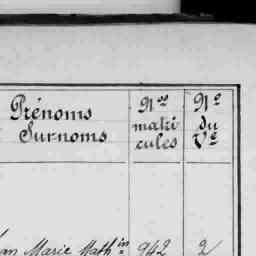 Prénoms
Surnoms
Nos
matri
cules
No
du
Ve
an Marie Mathin 942 2